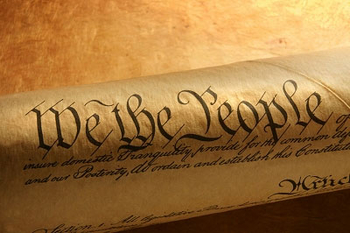 We the People of
insure domestic Tranquility, provide for the common
and our Posterity, do ordain and establish this Constitut
Artic
Section. 1. All